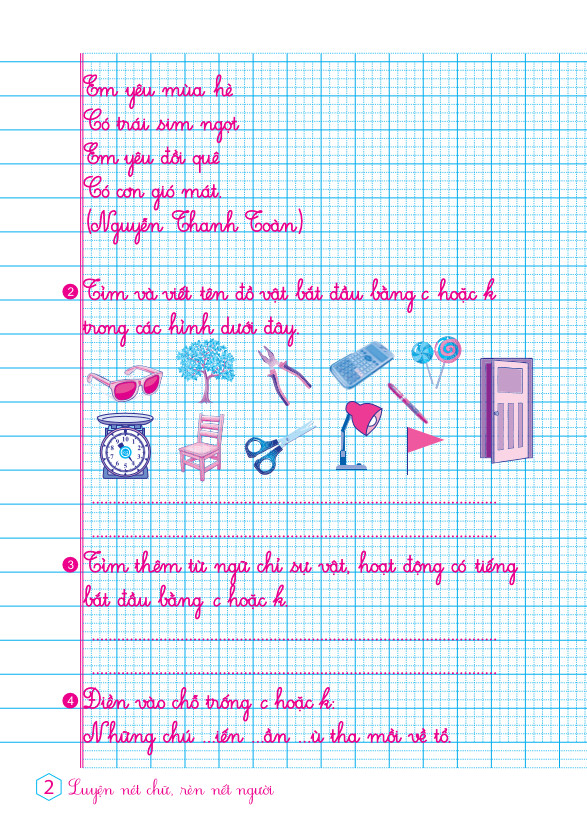 Em yêu mùa hè
Có trái sim ngọt
Em yêu đồi quê
Có cơn gió mát.
(Nguyễn Thanh Toàn)
2 Tìm và viết tên đồ vật bắt đầu bằng c hoặc k
trong các hình dưới đây.
3 Tìm thêm từ ngữ chỉ sự vật, hoạt động có tiếng
bắt đầu bằng c hoặc k.
4 Điền vào chỗ trống c hoặc k:
Những chú ...iến ...ần ...ù tha mồi về tổ.
2 Luyện nét chữ, rèn nết người